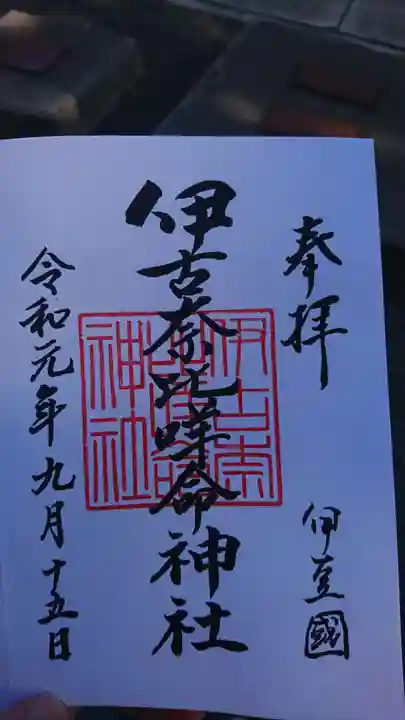 奉拝
伊豆國
伊古奈比咩命神社
伊古奈比咩命神社
令和元年九月十五日